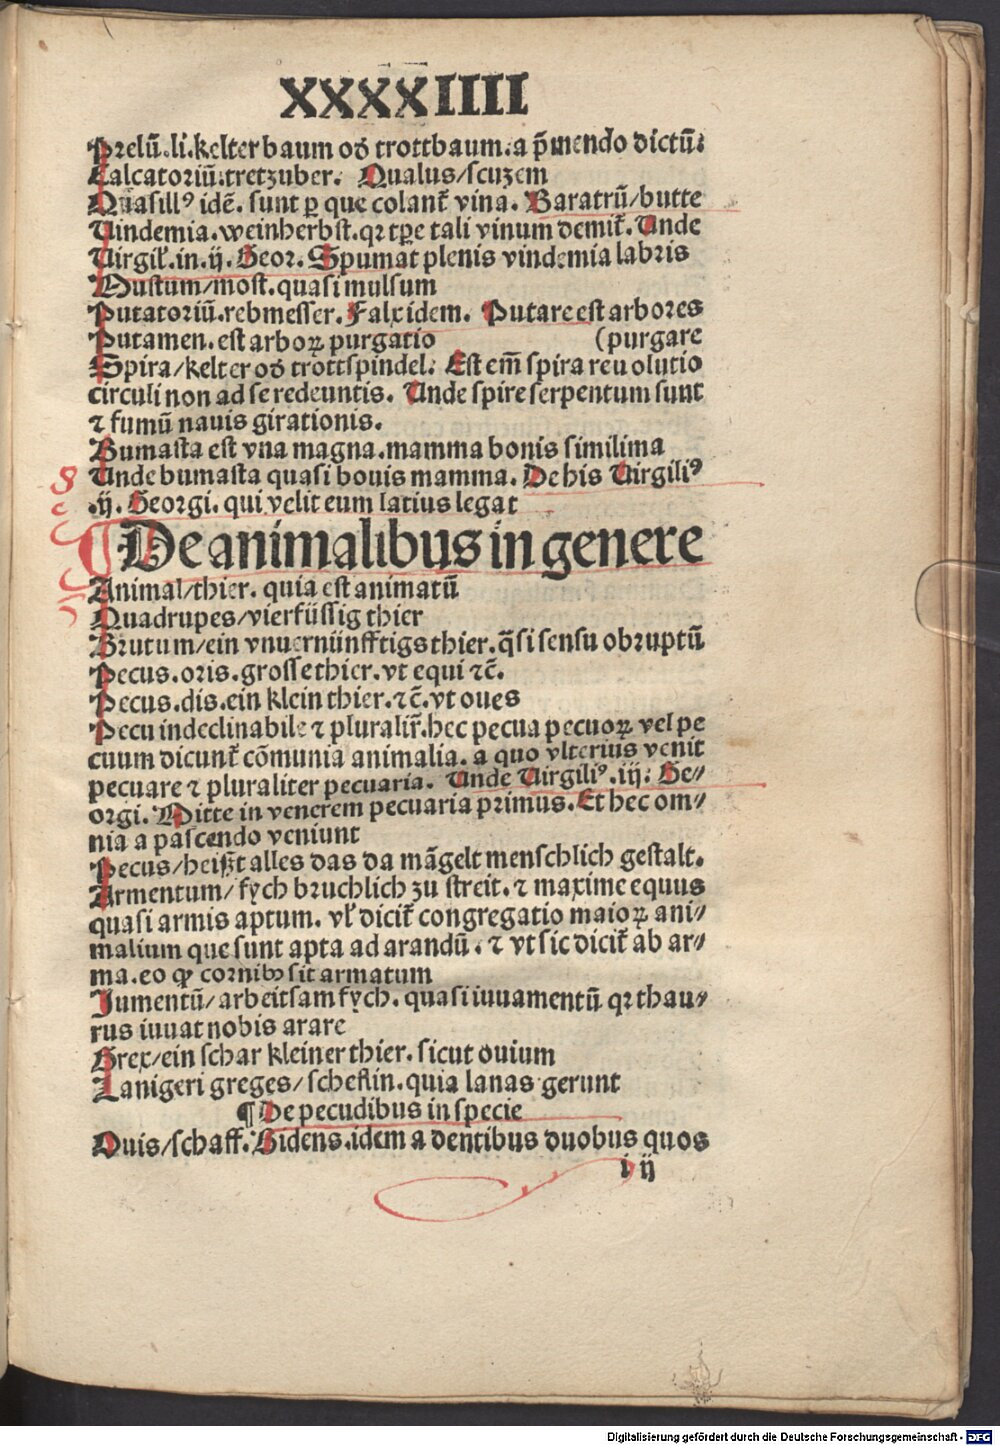 XXXXIIII
Prelū.li.kelter baum od̕ trottbaum.a p̄mendo dictū.
Calcatoriū.tretzuber. Qualus/scuzem
Quasillꝰ idē. sunt ꝑ que colant̄ vina. Baratrū/butte
Vindemia.weinherbst.qꝛ tꝑe tali vinum demit̄. Vnde
Virgil̕.in.ij. Geor. Spumat plenis vindemia labris
Mustum/most.quasi mulsum
Putatoriū.rebmesser. Falx idem. Putare est arbores
Putamen.est arboꝝ purgatio (purgare
Spira/kelter od̕ trottspindel. Est em̄ spira reuolutio
circuli non ad se redeuntis. Vnde spire serpentum sunt
⁊ fumū nauis girationis.
Bumasta est vna magna.mamma bonis similima
Vnde bumasta quasi bouis mamma. De his Virgiliꝰ
.ij. Georgi.qui velit eum latius legat
De animalibus in genere
Animal/thier. quia est animatū
Quadrupes/vierfüssig thier
Brutum/ein vnuernünfftigs thier.q̄si sensu obruptū
Pecus.oris.grosse thier.vt equi ⁊c̄.
Pecus.dis.ein klein thier.⁊c̄.vt oues
Pecu indeclinabile ⁊ pluralir̄.hec pecua pecuoꝝ vel pe
cuum dicunt̄ cōmunia animalia. a quo vlterius venit
pecuare ⁊ pluraliter pecuaria. Vnde Virgiliꝰ.iij. Ge/
orgi. Mitte in venerem pecuaria primus. Et hec om/
nia a pascendo veniunt
Pecus/heißt alles das da māgelt menschlich gestalt.
Armentum/ fych bruchlich zu streit.⁊ maxime equus
quasi armis aptum. vl̕ dicit̄ congregatio maioꝝ ani/
malium que sunt apta ad arandū.⁊ vt sic dicit̄ ab ar/
ma.eo ꝙ cornibꝫ sit armatum
Jumentū/arbeitsam fych. quasi iuuamentū qꝛ thau/
rus iuuat nobis arare
Grex/ein schar kleiner thier.sicut ouium
Lanigeri greges/scheflin.quia lanas gerunt
¶ De pecudibus in specie
Ouis/schaff. Bidens.idem a dentibus duobus quos
i ij
Digitalisierung gefördert durch die Deutsche Forschungsgemeinschaft - DFG